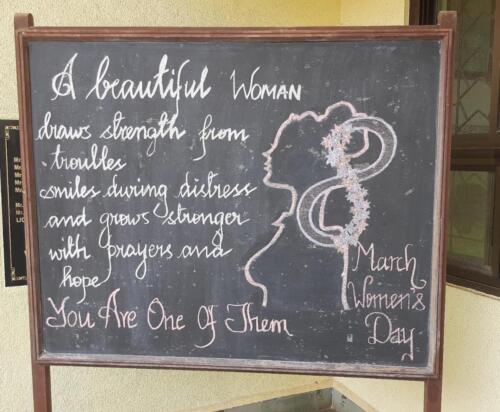 A beautiful WOMAN
draws strength from
troubles
smiles during distress
and grows stronger
with prayers and
hope
You Are One Of Them
8
March
Women's
Day